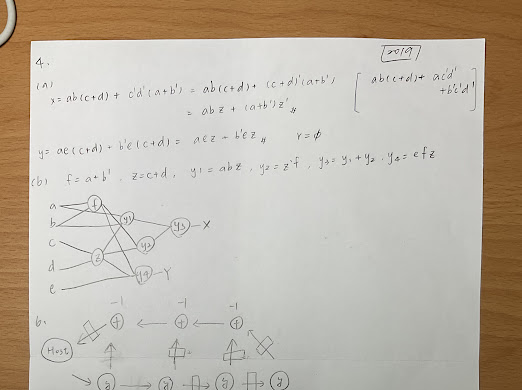 2019
4.
(a)
x = ab(c+d) + c'd'(a+b') = ab(c+d) + (c+d)'(a+b')
= abz + (a+b')z'
[ab(c+d) + ac'd' + b'c'd']
y = ae(c+d) + b'e(c+d) = aez + b'ez
r = ϕ
(b) f = a+b', z = c+d, y1 = abz, y2 = z'f, y3 = y1+y2, y4 = efz
a
b
c
d
e
f
z
y1
y2
y3
y4
X
Y
6.
-1 -1 -1
+ + +
Host